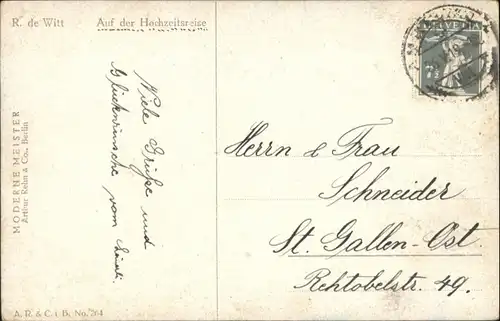 R. de Witt Auf der Hochzeitsreise
HELVETIA
MODERNE MEISTER
Arthur Rehn & Co., Berlin
Viele Grüße und
Glückwünsche vom
Herrn & Frau
Schneider
St. Gallen-Ost
Rehtobelstr. 49.
A. R. & C. i. B. No. 264